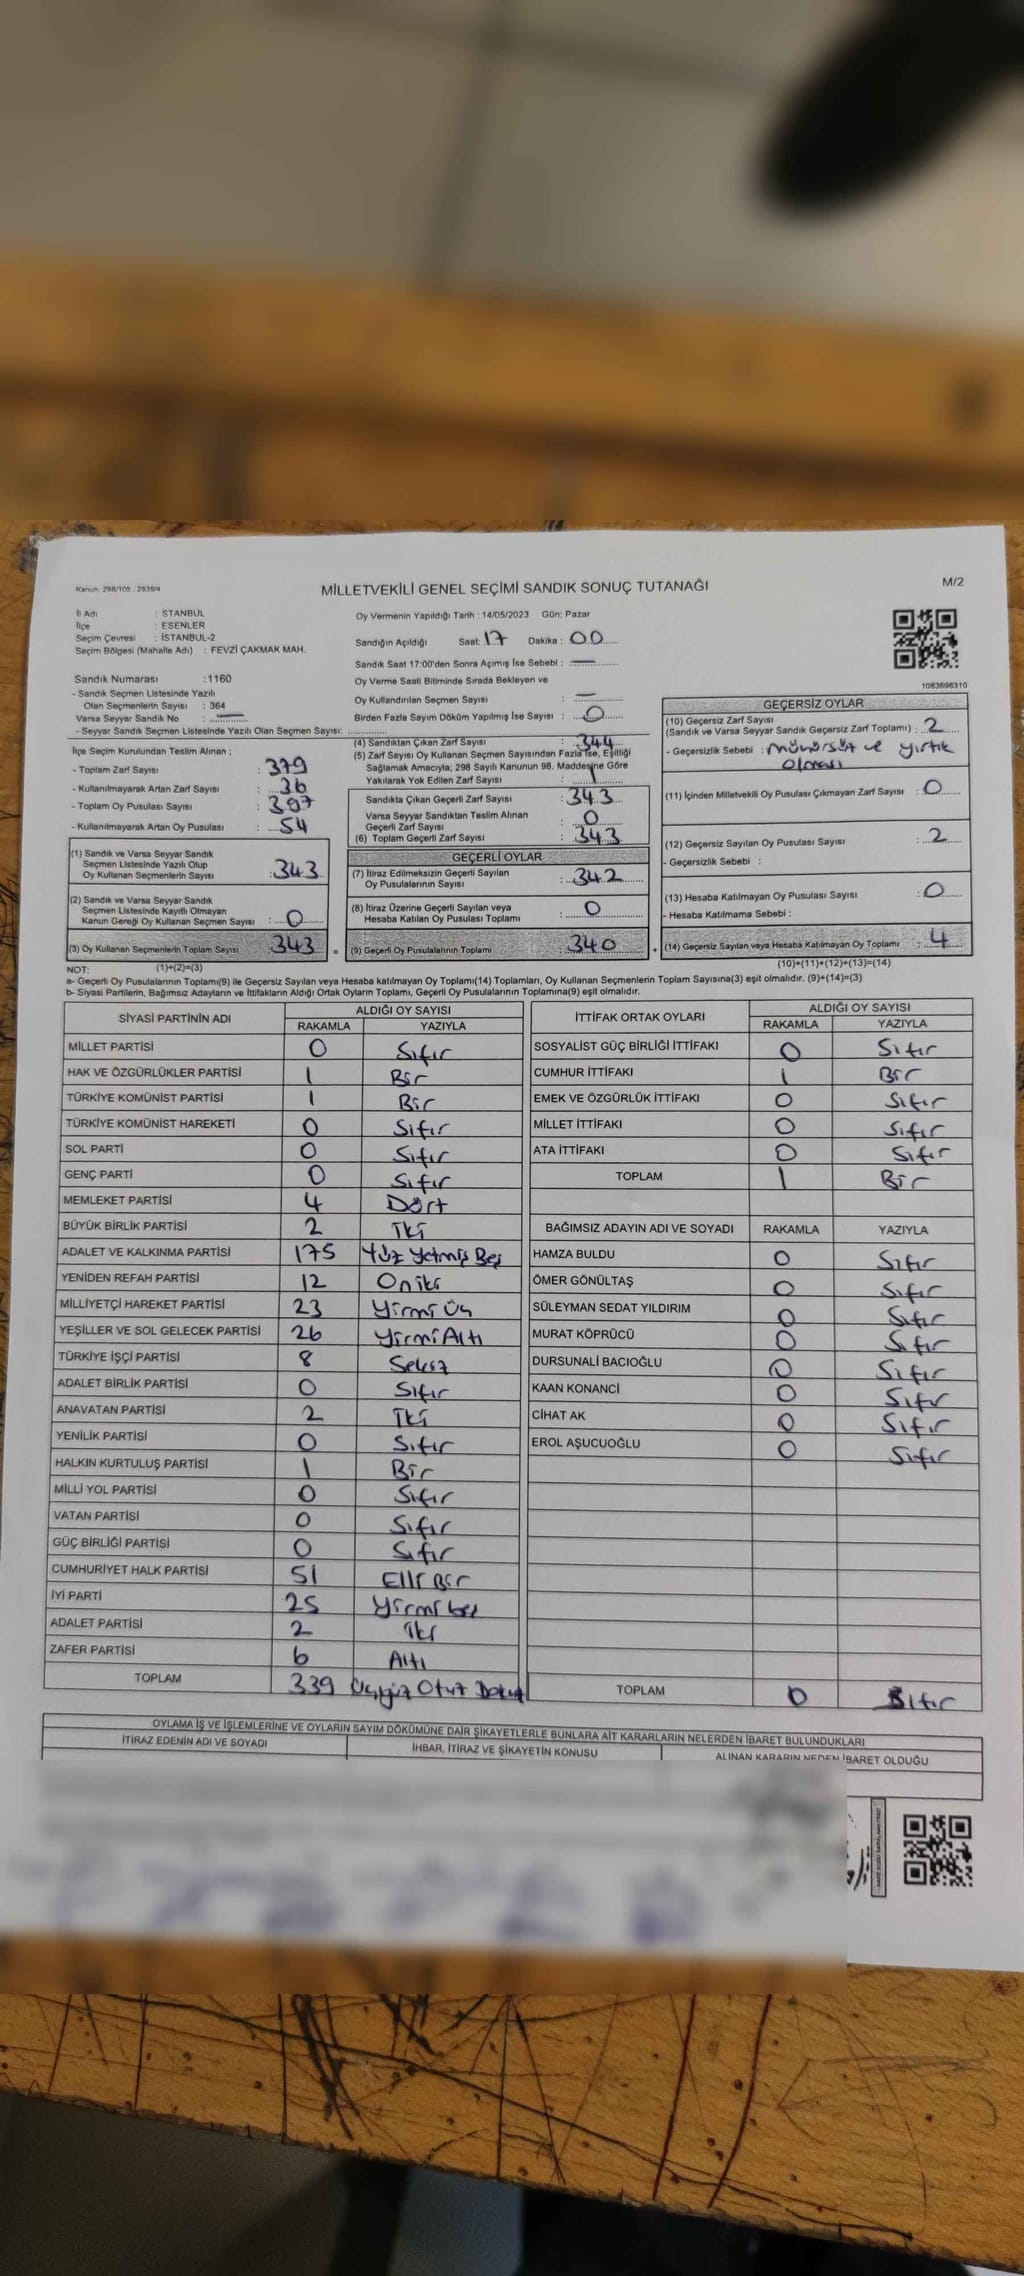 Kanun: 298/105 , 2839/4
MİLLETVEKİLİ GENEL SEÇİMİ SANDIK SONUÇ TUTANAĞI
M/2
İl Adı : STANBUL
İlçe : ESENLER
Seçim Çevresi : İSTANBUL-2
Seçim Bölgesi (Mahalle Adı) : FEVZİ ÇAKMAK MAH.
Oy Vermenin Yapıldığı Tarih : 14/05/2023 Gün: Pazar
Sandığın Açıldığı Saat: 17 Dakika : 00
Sandık Saat 17:00'den Sonra Açımış İse Sebebi : —
Oy Verme Saati Bitiminde Sırada Bekleyen ve
Oy Kullandırılan Seçmen Sayısı : —
Birden Fazla Sayım Döküm Yapılmış İse Sayısı : 0
1083696310
Sandık Numarası :1160
- Sandık Seçmen Listesinde Yazılı
Olan Seçmenlerin Sayısı : 364
Varsa Seyyar Sandık No : —
- Seyyar Sandık Seçmen Listesinde Yazılı Olan Seçmen Sayısı:
İlçe Seçim Kurulundan Teslim Alınan ;
- Toplam Zarf Sayısı : 379
- Kullanılmayarak Artan Zarf Sayısı : 36
- Toplam Oy Pusulası Sayısı : 397
- Kullanılmayarak Artan Oy Pusulası : 54
(1) Sandık ve Varsa Seyyar Sandık
Seçmen Listesinde Yazılı Olup
Oy Kullanan Seçmenlerin Sayısı : 343
(2) Sandık ve Varsa Seyyar Sandık
Seçmen Listesinde Kayıtlı Olmayan
Kanun Gereği Oy Kullanan Seçmen Sayısı : 0
(3) Oy Kullanan Seçmenlerin Toplam Sayısı 343 =
(1)+(2)=(3)
(4) Sandıktan Çıkan Zarf Sayısı : 344
(5) Zarf Sayısı Oy Kullanan Seçmen Sayısından Fazla İse, Eşitliği
Sağlamak Amacıyla; 298 Sayılı Kanunun 98. Maddesine Göre
Yakılarak Yok Edilen Zarf Sayısı : 1
Sandıkta Çıkan Geçerli Zarf Sayısı : 343
Varsa Seyyar Sandıktan Teslim Alınan
Geçerli Zarf Sayısı : 0
(6) Toplam Geçerli Zarf Sayısı : 343
GEÇERLİ OYLAR
(7) İtiraz Edilmeksizin Geçerli Sayılan
Oy Pusulalarının Sayısı : 342
(8) İtiraz Üzerine Geçerli Sayılan veya
Hesaba Katılan Oy Pusulası Toplamı : 0
(9) Geçerli Oy Pusulalarının Toplamı : 340 +
GEÇERSİZ OYLAR
(10) Geçersiz Zarf Sayısı
(Sandık ve Varsa Seyyar Sandık Geçersiz Zarf Toplamı) : 2
- Geçersizlik Sebebi : mühürsüz ve yırtık
olması
(11) İçinden Milletvekili Oy Pusulası Çıkmayan Zarf Sayısı : 0
(12) Geçersiz Sayılan Oy Pusulası Sayısı : 2
- Geçersizlik Sebebi :
(13) Hesaba Katılmayan Oy Pusulası Sayısı : 0
- Hesaba Katılmama Sebebi :
(14) Geçersiz Sayılan veya Hesaba Katılmayan Oy Toplamı : 4
(10)+(11)+(12)+(13)=(14)
NOT:
a- Geçerli Oy Pusulalarının Toplamı(9) ile Geçersiz Sayılan veya Hesaba katılmayan Oy Toplamı(14) Toplamları, Oy Kullanan Seçmenlerin Toplam Sayısına(3) eşit olmalıdır. (9)+(14)=(3)
b- Siyasi Partilerin, Bağımsız Adayların ve İttifakların Aldığı Ortak Oyların Toplamı, Geçerli Oy Pusulalarının Toplamına(9) eşit olmalıdır.
SİYASİ PARTİNİN ADI ALDIĞI OY SAYISI
RAKAMLA YAZIYLA
MİLLET PARTİSİ 0 Sıfır
HAK VE ÖZGÜRLÜKLER PARTİSİ 1 Bir
TÜRKİYE KOMÜNİST PARTİSİ 1 Bir
TÜRKİYE KOMÜNİST HAREKETİ 0 Sıfır
SOL PARTİ 0 Sıfır
GENÇ PARTİ 0 Sıfır
MEMLEKET PARTİSİ 4 Dört
BÜYÜK BİRLİK PARTİSİ 2 İki
ADALET VE KALKINMA PARTİSİ 175 Yüz Yetmiş Beş
YENİDEN REFAH PARTİSİ 12 On iki
MİLLİYETÇİ HAREKET PARTİSİ 23 Yirmi Üç
YEŞİLLER VE SOL GELECEK PARTİSİ 26 Yirmi Altı
TÜRKİYE İŞÇİ PARTİSİ 8 Sekiz
ADALET BİRLİK PARTİSİ 0 Sıfır
ANAVATAN PARTİSİ 2 İki
YENİLİK PARTİSİ 0 Sıfır
HALKIN KURTULUŞ PARTİSİ 1 Bir
MİLLİ YOL PARTİSİ 0 Sıfır
VATAN PARTİSİ 0 Sıfır
GÜÇ BİRLİĞİ PARTİSİ 0 Sıfır
CUMHURİYET HALK PARTİSİ 51 Elli Bir
İYİ PARTİ 25 Yirmi beş
ADALET PARTİSİ 2 İki
ZAFER PARTİSİ 6 Altı
TOPLAM 339 Üçyüz Otuz Dokuz
İTTİFAK ORTAK OYLARI ALDIĞI OY SAYISI
RAKAMLA YAZIYLA
SOSYALİST GÜÇ BİRLİĞİ İTTİFAKI 0 Sıfır
CUMHUR İTTİFAKI 1 Bir
EMEK VE ÖZGÜRLÜK İTTİFAKI 0 Sıfır
MİLLET İTTİFAKI 0 Sıfır
ATA İTTİFAKI 0 Sıfır
TOPLAM 1 Bir
BAĞIMSIZ ADAYIN ADI VE SOYADI RAKAMLA YAZIYLA
HAMZA BULDU 0 Sıfır
ÖMER GÖNÜLTAŞ 0 Sıfır
SÜLEYMAN SEDAT YILDIRIM 0 Sıfır
MURAT KÖPRÜCÜ 0 Sıfır
DURSUNALİ BACIOĞLU 0 Sıfır
KAAN KONANCİ 0 Sıfır
CİHAT AK 0 Sıfır
EROL AŞUCUOĞLU 0 Sıfır
TOPLAM 0 Sıfır
OYLAMA İŞ VE İŞLEMLERİNE VE OYLARIN SAYIM DÖKÜMÜNE DAİR ŞİKAYETLERLE BUNLARA AİT KARARLARIN NELERDEN İBARET BULUNDUKLARI
İTİRAZ EDENİN ADI VE SOYADI İHBAR, İTİRAZ VE ŞİKAYETİN KONUSU ALINAN KARARIN NEDEN İBARET OLDUĞU